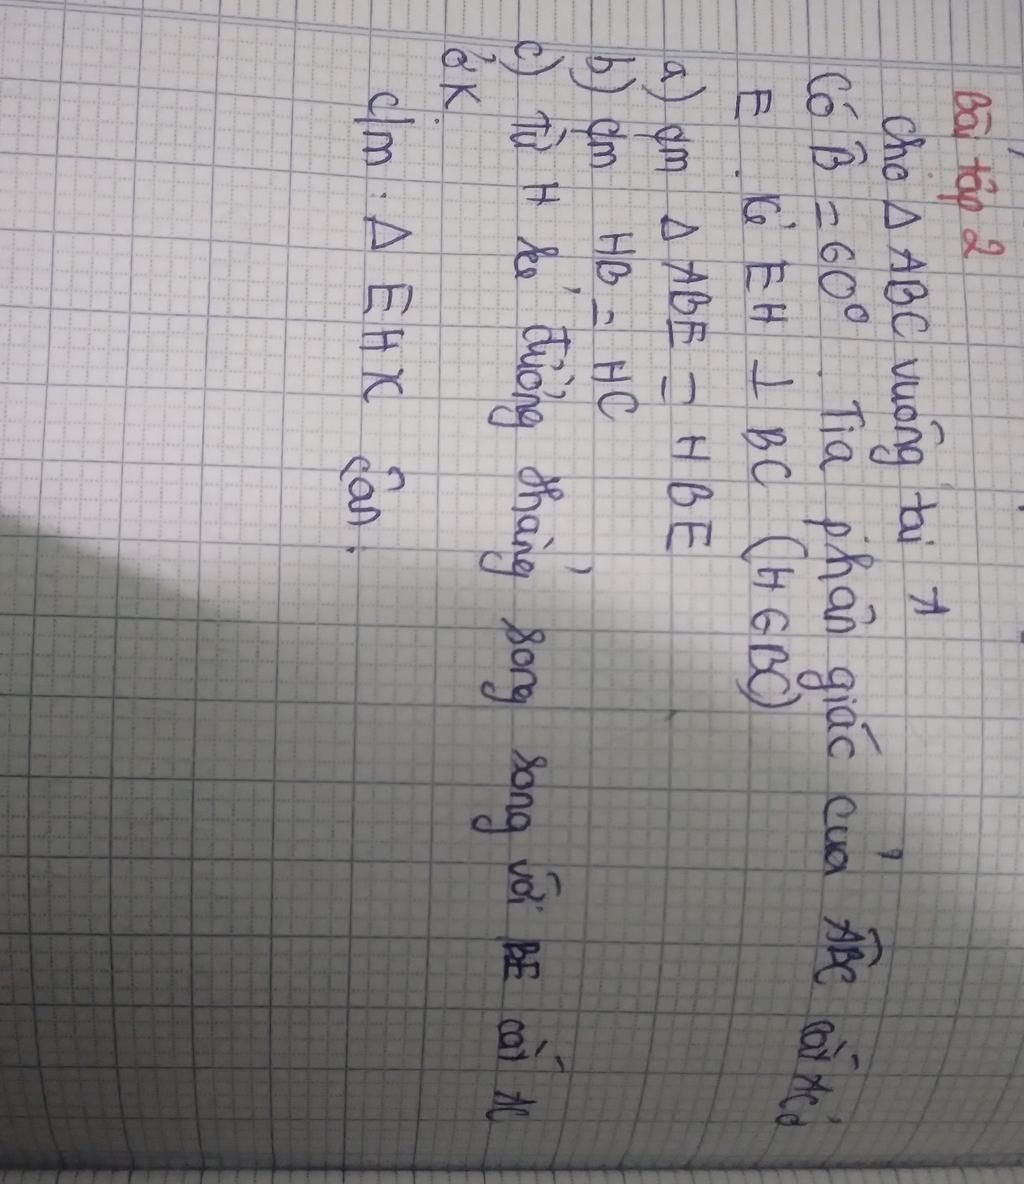 Bài tập 2
Cho Δ ABC vuông tại A
Có B̂ = 60° . Tia phân giác của ABC cắt AC ở
E . Kẻ EH ⊥ BC (H ∈ BC)
a) cm Δ ABE = HBE
b) cm HB = HC
c) Từ H kẻ đường thẳng song song với BE cắt AC
ở K.
c/m : Δ EHK cân.